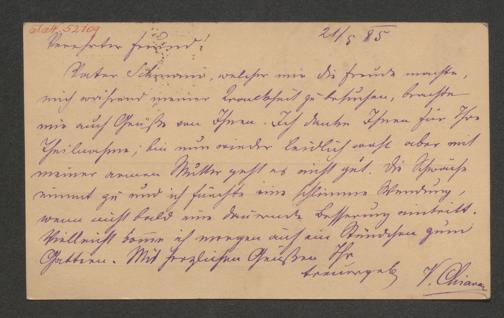 21/5 85
Verehrter Freund!
Pater Schwann, welcher mir die Freude machte,
mich während meiner Krankheit zu besuchen, brachte
mir auch Grüße von Ihnen. Ich danke Ihnen für Ihre
Theilnahme; bin nun wieder leidlich wohl aber mit
meiner armen Mutter geht es nicht gut. Die Schwäche
nimmt zu und ich fürchte eine schlimme Wendung,
wenn nicht bald eine dauernde Besserung eintritt.
Vielleicht komme ich morgen auf ein Stündchen zum
Mit herzlichen Grüßen Ihr
treuergeb.
V. Chiavacci